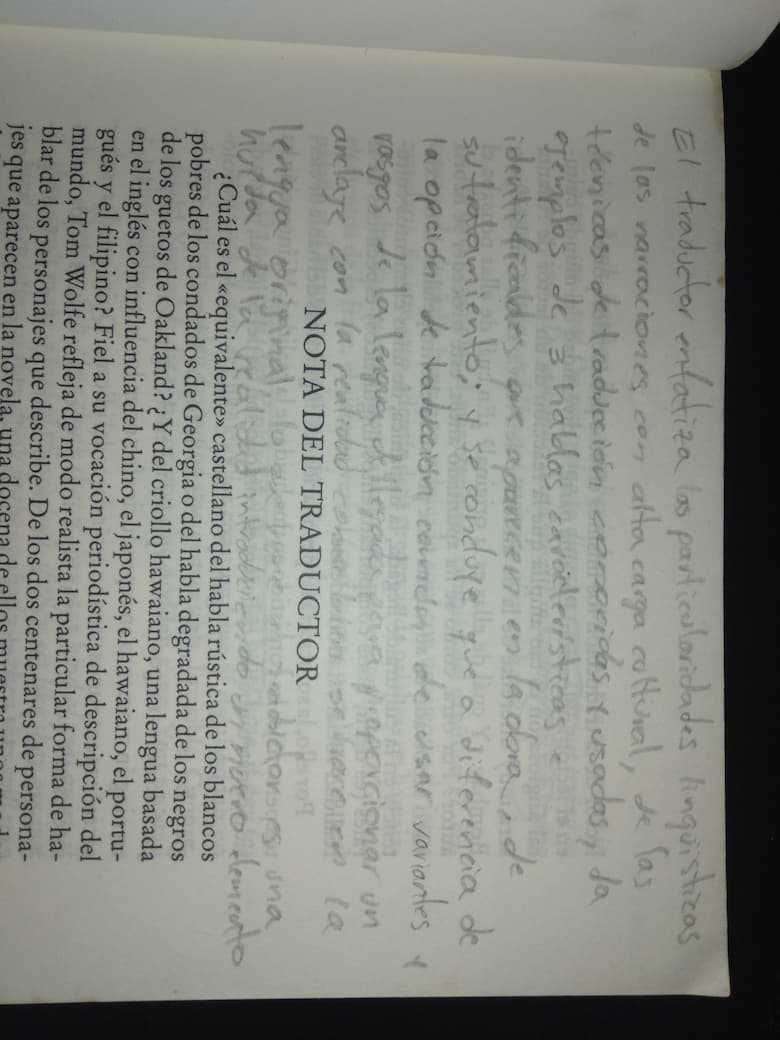 El traductor enfatiza las particularidades lingüísticas
de las narraciones con alta carga cultural, de las
técnicas de traducción conocidas y usadas, da
ejemplos de 3 hablas características e
identificables que aparecen en la obra, de
su tratamiento; y se concluye que a diferencia de
la opción de traducción común de usar variantes y
rasgos de la lengua de llegada para proporcionar un
anclaje con la realidad como se hace en la
NOTA DEL TRADUCTOR
lengua original, lo que hace el traductor es una
huida de la realidad introduciendo un nuevo elemento
¿Cuál es el «equivalente» castellano del habla rústica de los blancos
pobres de los condados de Georgia o del habla degradada de los negros
de los guetos de Oakland? ¿Y del criollo hawaiano, una lengua basada
en el inglés con influencia del chino, el japonés, el hawaiano, el portu-
gués y el filipino? Fiel a su vocación periodística de descripción del
mundo, Tom Wolfe refleja de modo realista la particular forma de ha-
blar de los personajes que describe. De los dos centenares de persona-
jes que aparecen en la novela, una docena de ellos muestra